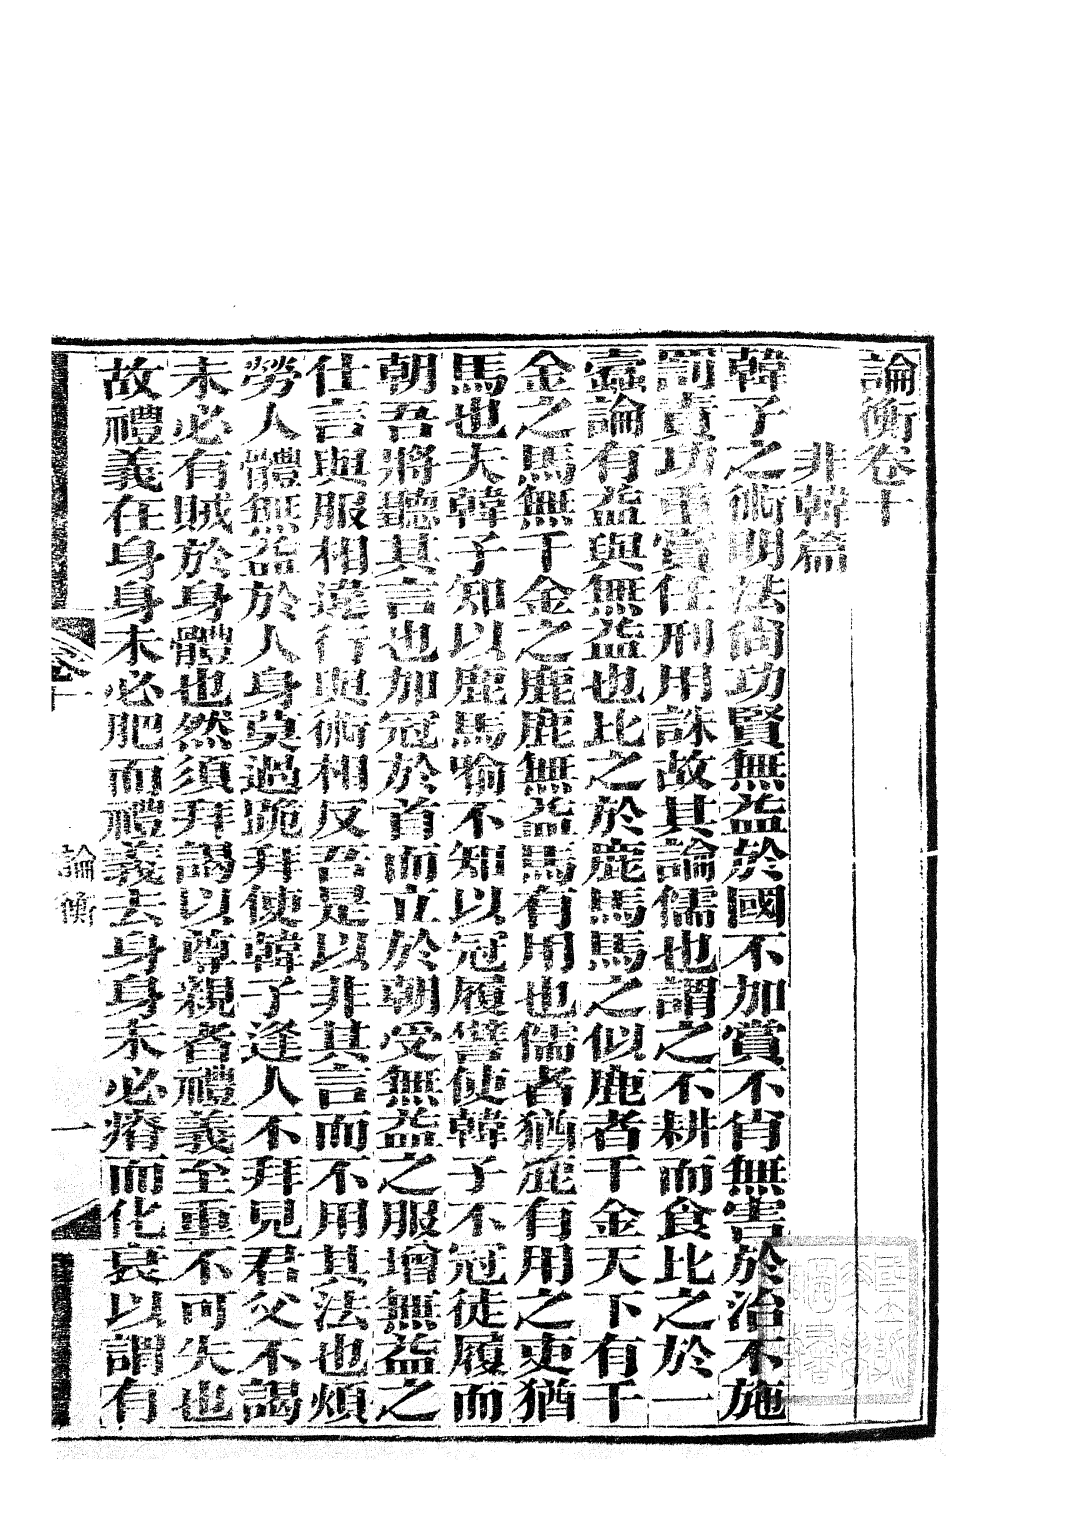 論衡卷十
非韓篇
韓子之術明法尚功賢無益於國不加賞不肖無害於治不施
罰責功重賞任刑用誅故其論儒也謂之不耕而食比之於一
蠹論有益與無益也比之於鹿馬馬之似鹿者千金天下有千
金之馬無千金之鹿鹿無益馬有用也儒者猶鹿有用之吏猶
馬也夫韓子知以鹿馬喻不知以冠履譬使韓子不冠徒履而
朝吾將聽其言也加冠於首而立於朝受無益之服增無益之
仕言與服相違行與術相反吾是以非其言而不用其法也煩
勞人體無益於人身莫過跪拜使韓子逢人不拜見君父不謁
未必有賊於身體也然須拜謁以尊親者禮義至重不可失也
故禮義在身身未必肥而禮義去身身未必瘠而化衰以謂有
卷十
論衡
一